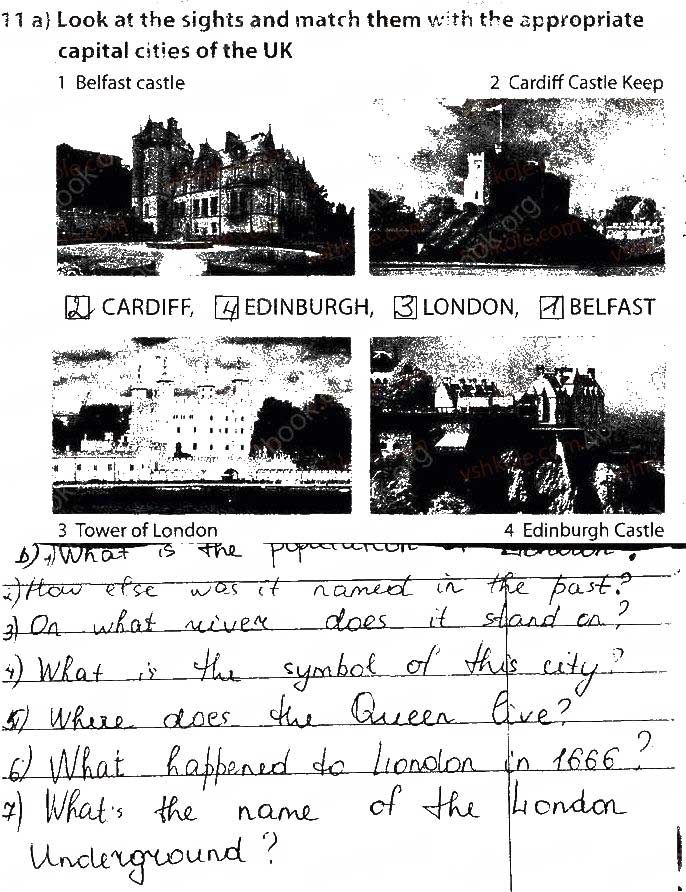 11 a) Look at the sights and match them with the appropriate
capital cities of the UK
1 Belfast castle
2 Cardiff Castle Keep
2 CARDIFF, 4 EDINBURGH, 3 LONDON, 1 BELFAST
3 Tower of London
4 Edinburgh Castle
b) 1) What is the population of London?
2) How else was it named in the past?
3) On what river does it stand on?
4) What is the symbol of this city?
5) Where does the Queen live?
6) What happened to London in 1666?
7) What's the name of the London
Underground?